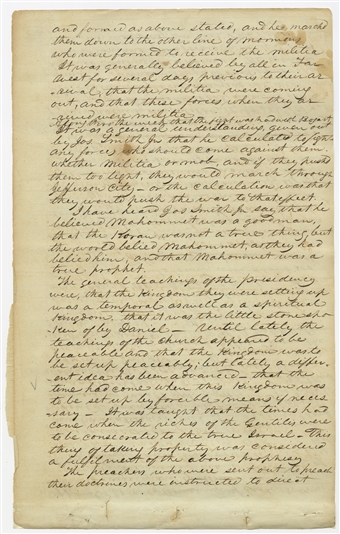 and formed as above stated, and he marched
them down to the other line of mormons
who were formed to receive the militia
It was generally believed by all in Far
West for several days previous to their ar-
-rival, that the militia were coming
out, and that these forces when they ar
rived were militia
It was a general understanding given out
by Jos Smith Jr that he calculated to fight
any forces who should come against them,
whether Militia or mob, and if they pushed
them too tight, they would march through
Jefferson City – or the calculation was that
they would push the war to that effect.
I have heard Jos Smith Jr say, that he
believed Mahommet was a good man,
that the Koran was not a true thing, but
the world belied Mahommet, as they had
belied him, and that Mahommet was a
true prophet.
The general teachings of the Presidency
were, that the Kingdom they were setting up
was a temporal as well as a spiritual
Kingdom, that it was the little stone spo-
-ken of by Daniel – Until lately the
teachings of the Church appeared to be
peaceable and that the Kingdom was to
be set up peaceably, but lately a differ-
ent idea has been advanced – that the
time had come when this Kingdom was
to be set up by forcible means if neces
-sary – It was taught that the times had
come when the riches of the Gentiles were
to be consecrated to the true Israel – This
thing of taking property was considered
a fulfilment of the above prophesy
The preachers who were sent out to preach
their doctrines were instructed to direct